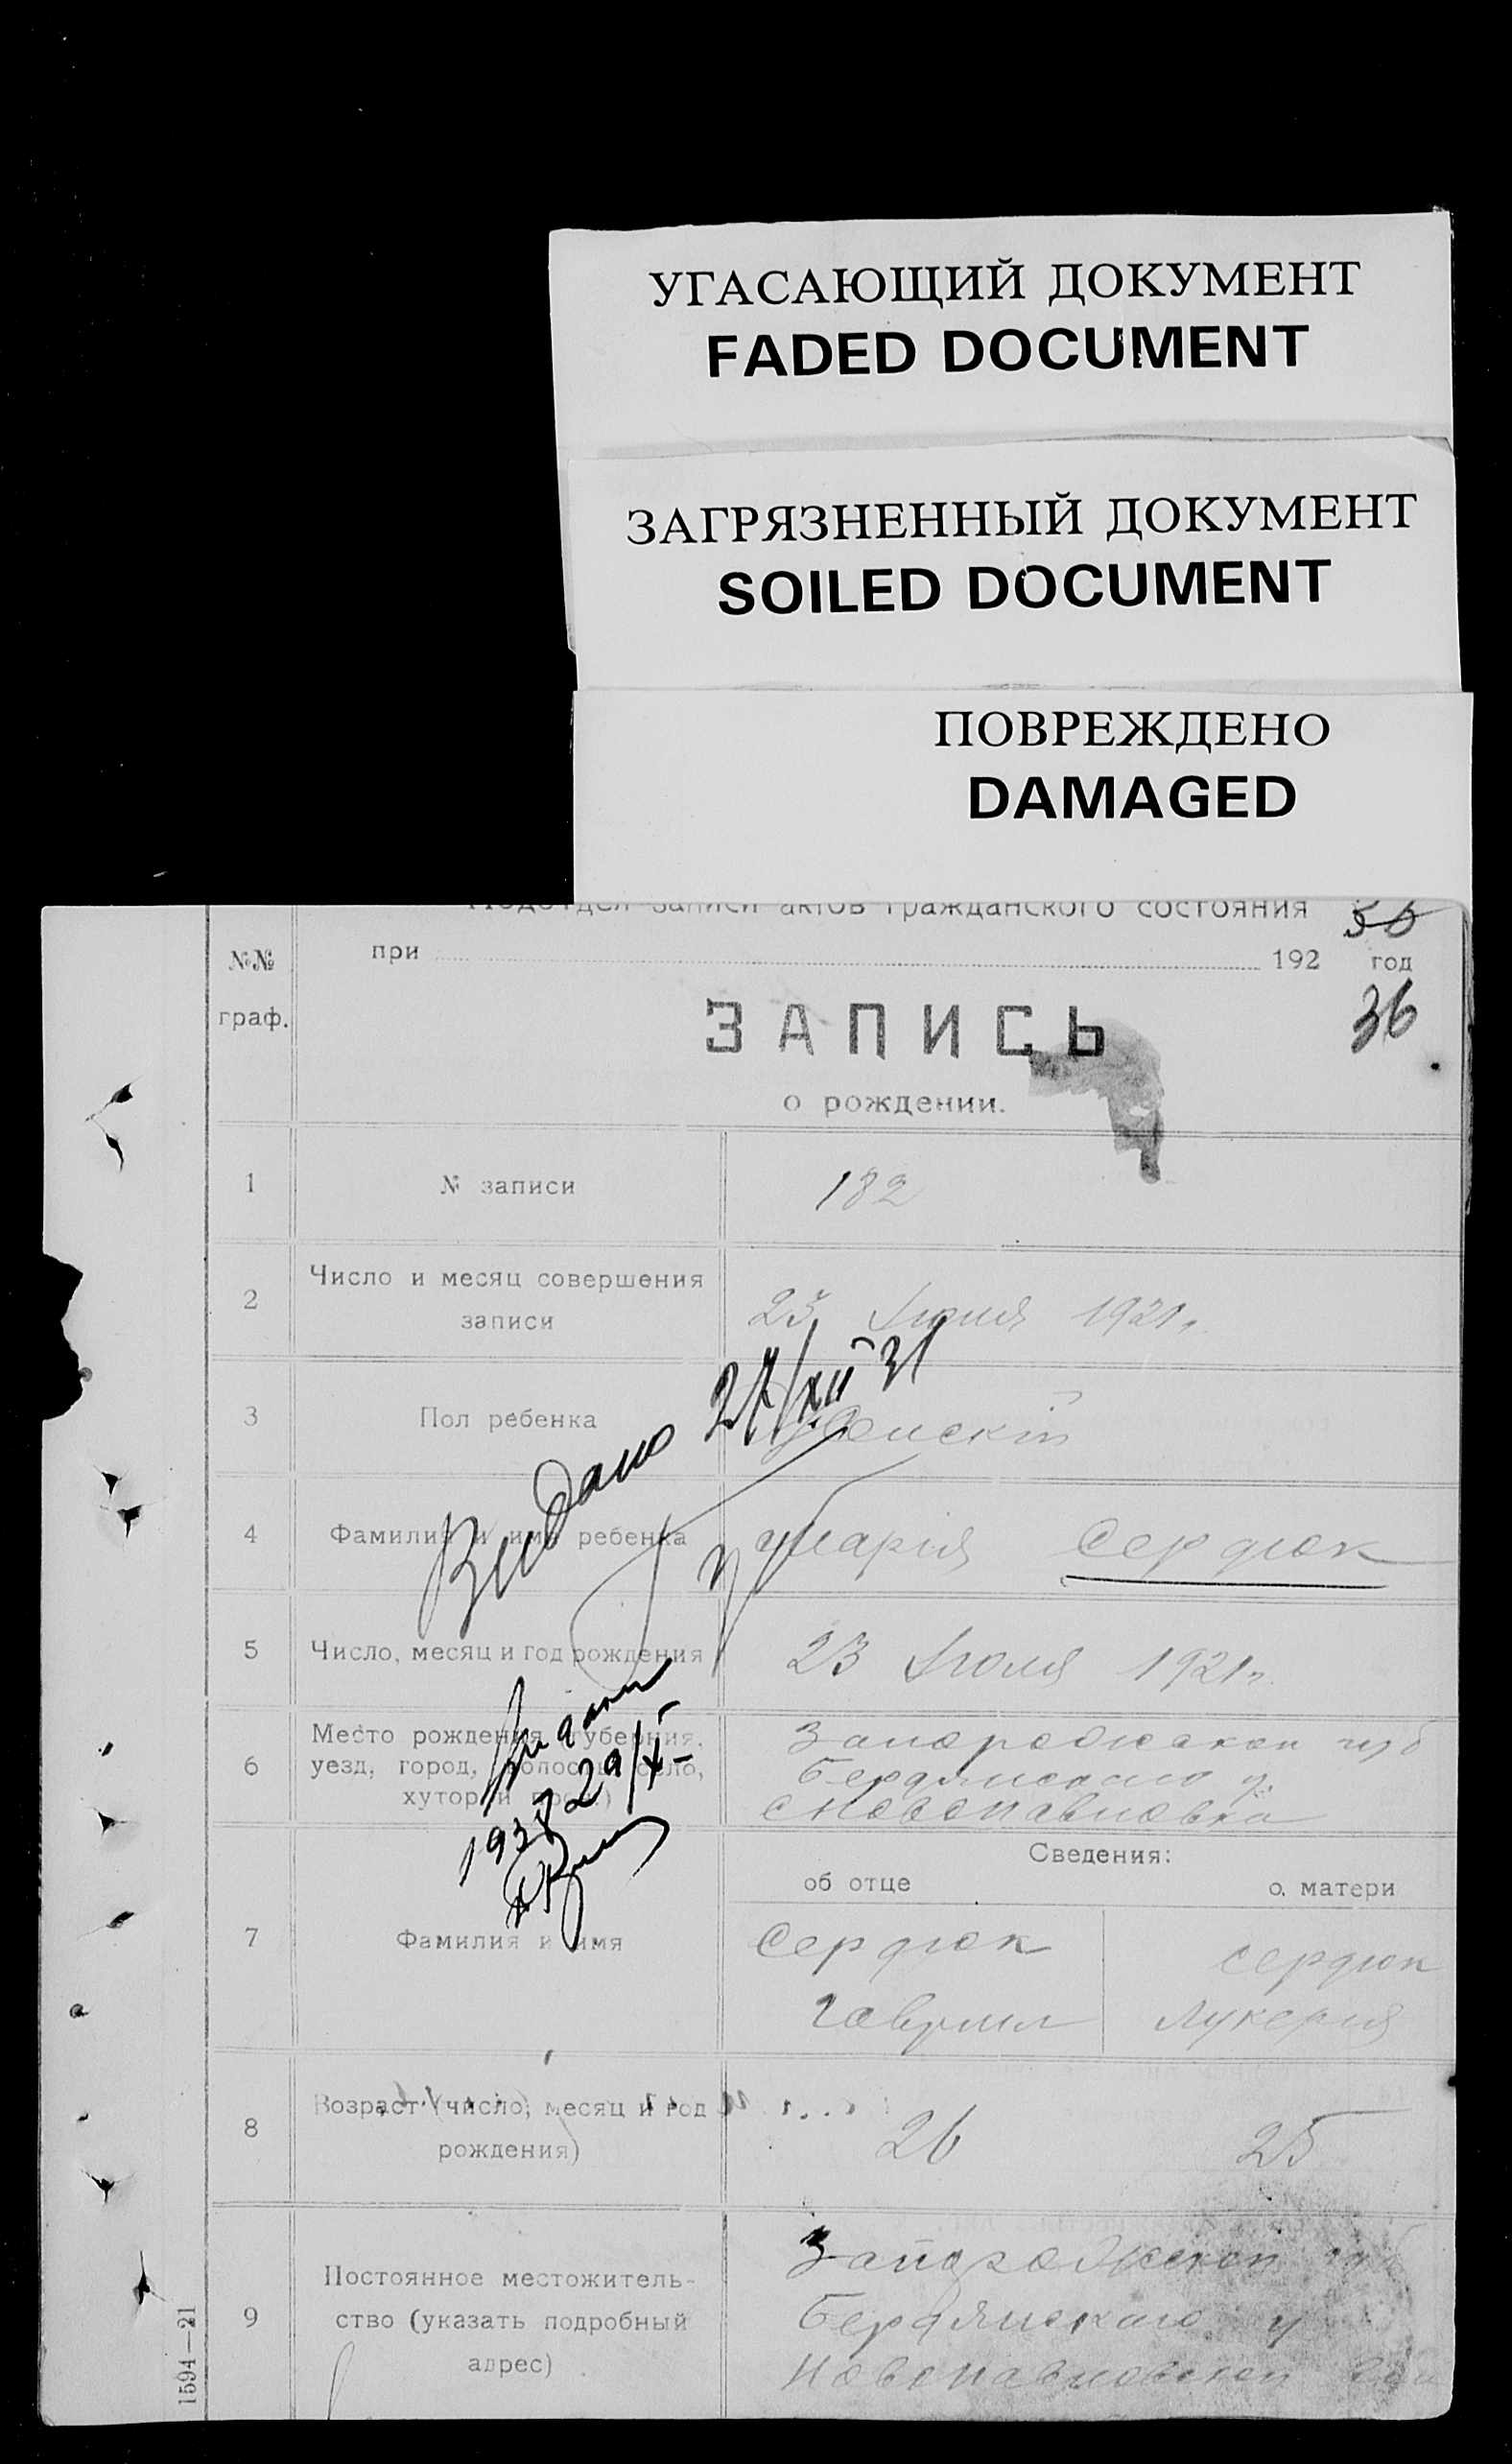 УГАСАЮЩИЙ ДОКУМЕНТ
FADED DOCUMENT
ЗАГРЯЗНЕННЫЙ ДОКУМЕНТ
SOILED DOCUMENT
ПОВРЕЖДЕНО
DAMAGED
Подотдел записи актов гражданского состояния
№№ граф.
при 192 год
36
ЗАПИСЬ
о рождении.
1 № записи 182
2 Число и месяц совершения записи 23 Июля 1921 г.
3 Пол ребенка Женскій
Видано 27/XII 31
4 Фамилия и имя ребенка Марія Сердюк
5 Число, месяц и год рождения 23 Июля 1921 г.
6 Место рождения (губерния,
уезд, город, волость, село,
хутор и проч.)
Запорожской губ
Бердянскаго у.
с Новопавловка
29/X
Сведения:
об отце
о матери
7 Фамилия и имя
Сердюк
Гавриил
Сердюк
Лукерия
8 Возраст (число, месяц и год
рождения)
26
25
9 Постоянное местожитель-
ство (указать подробный
адрес)
Запорожской губ
Бердянскаго у
Новопавловской
1594—21